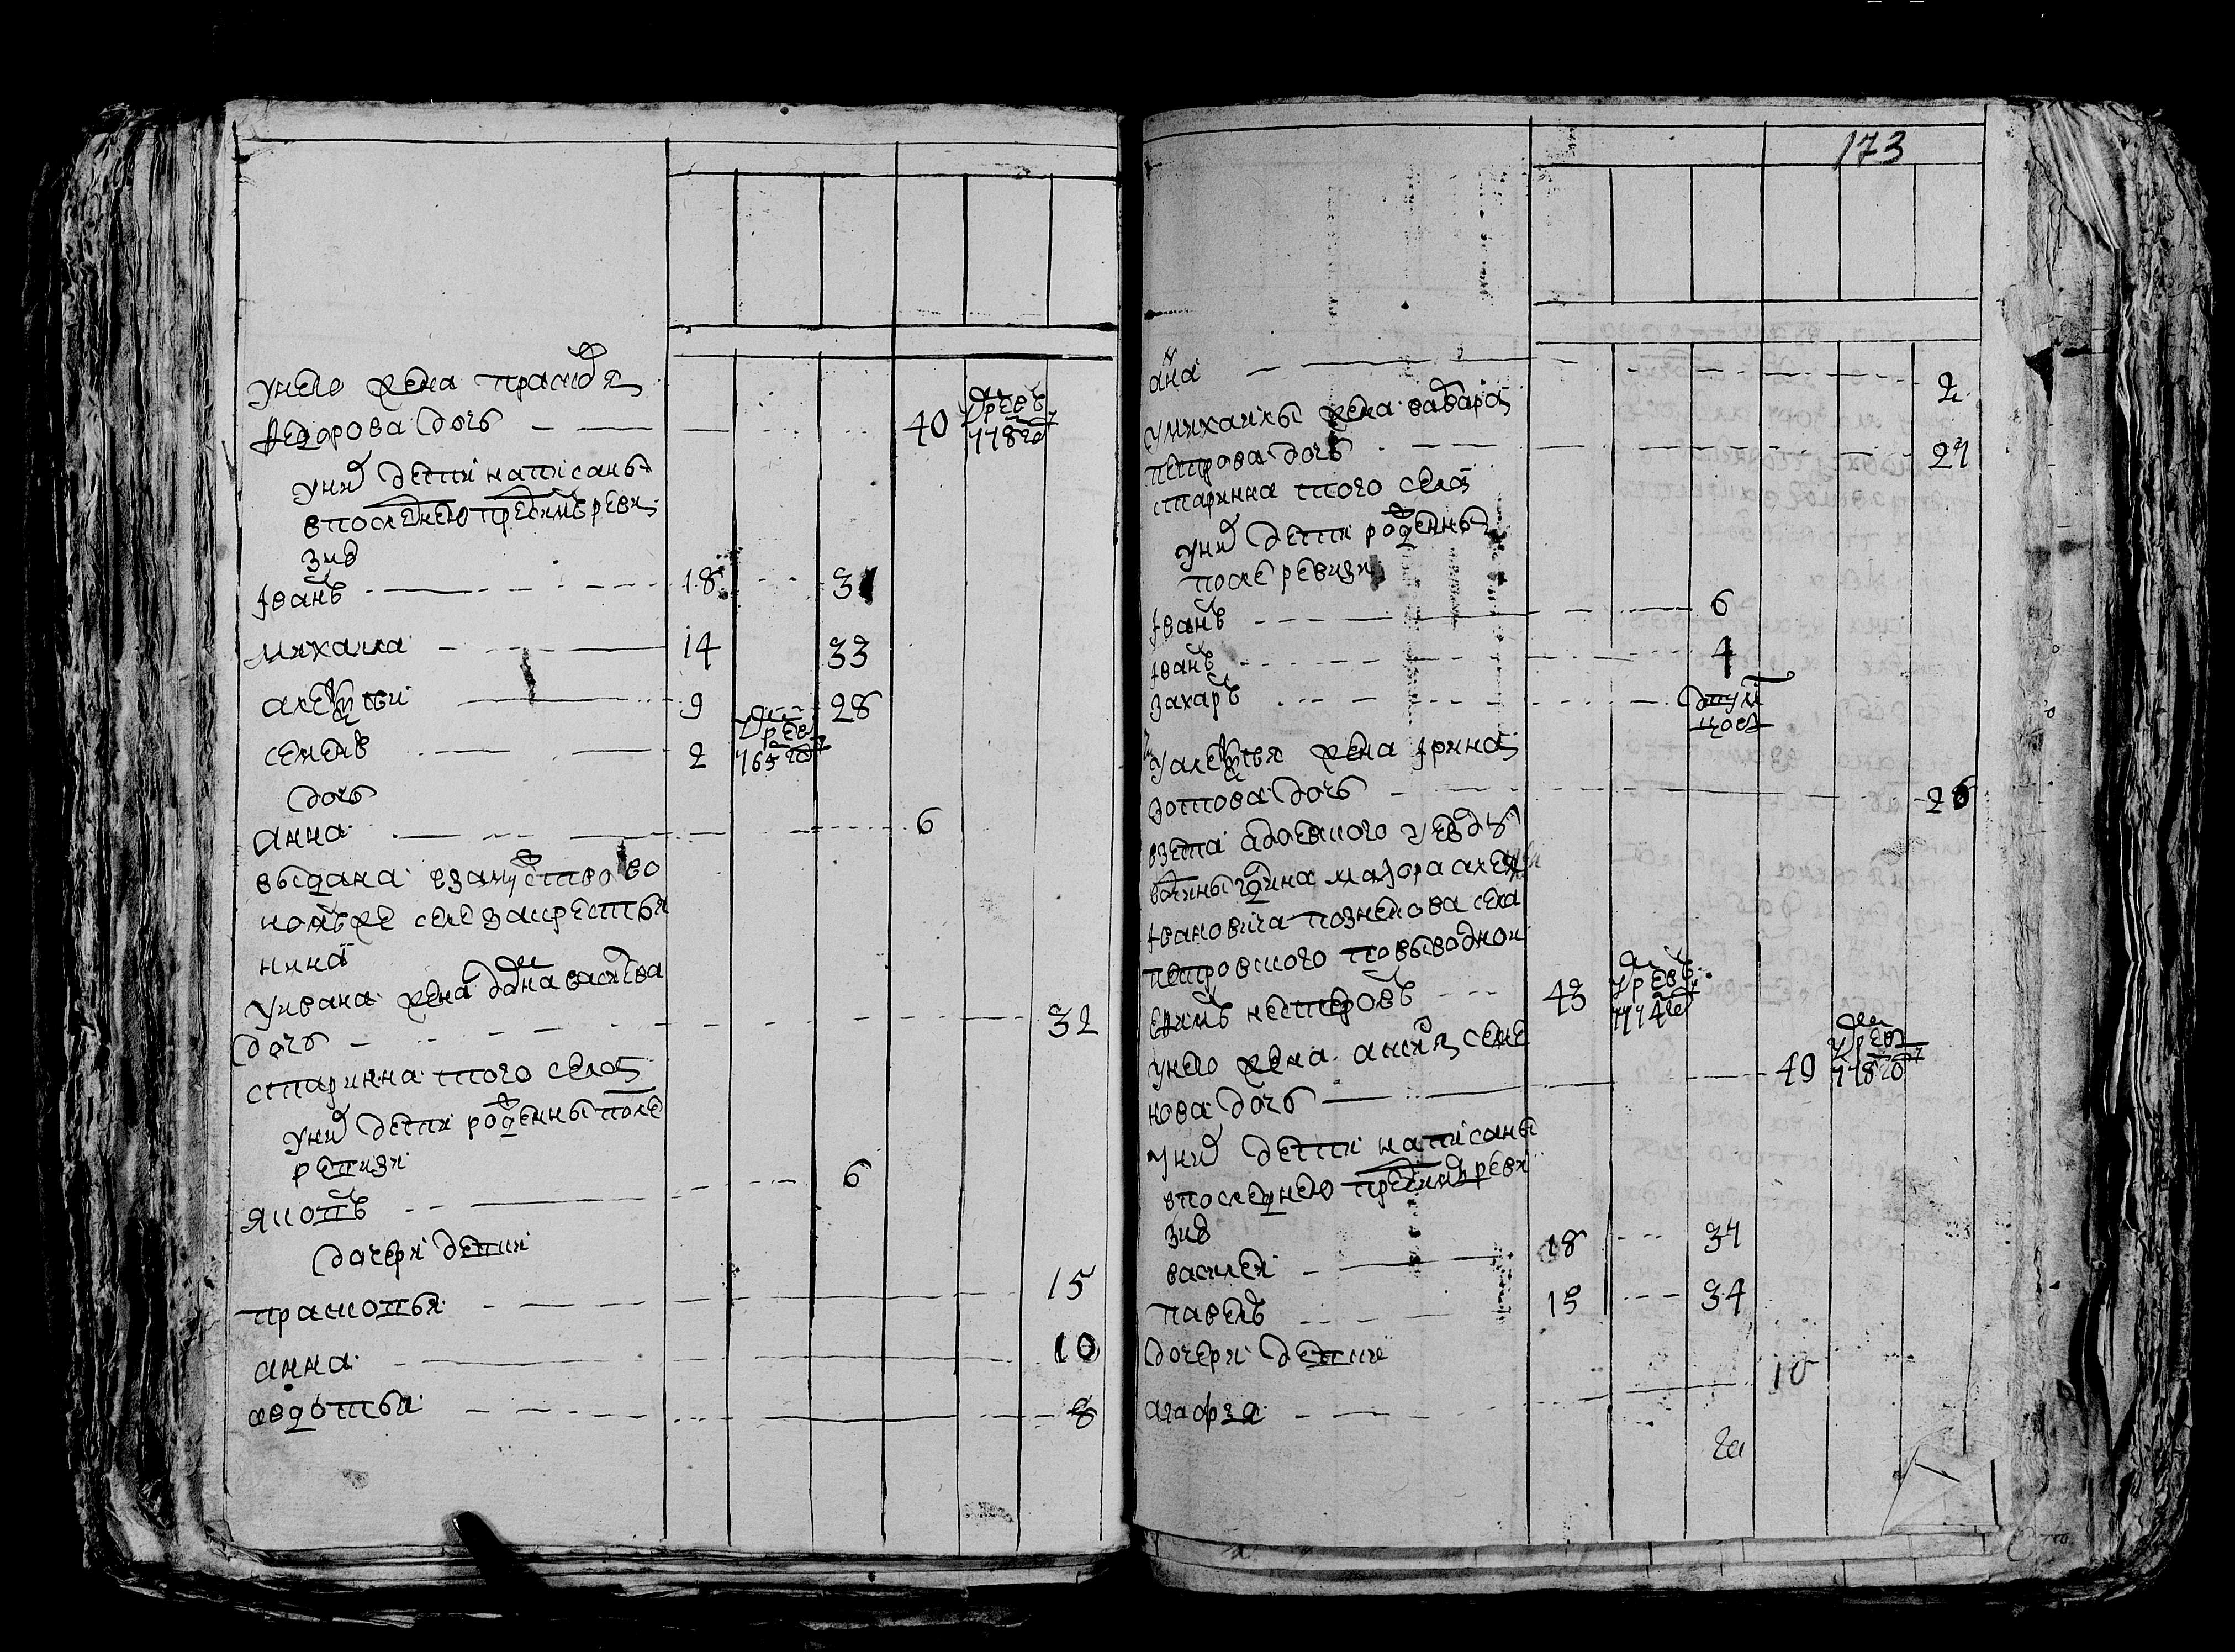 унево жена праско в я
федорова дочь 40 умре в 1778 году
уних дети написаны
впоследнею предимъ реви
зию
Іванъ 18 31
михаила 14 33
алексеи 9 28
семенъ 2 умре 765 году
дочь
анна 6
выдана взамуство во
номъже селе закрестья
нина
уивана жена васильева
дочь 32
старинна того села
уних дети рожденны после
ревизи
яковъ 6
дочери дети
прасковья 15
анна 10
авдотья 8
173
ана 2
умихаилы жена варвара
петрова дочь 27
старинна того села
уних дети рожденны
после ревизи
Іванъ 6
Іванъ 4
захаръ
уалексея жена Ірина
зотова дочь 26
взета уезду
вочины гдина маэора алексея
Івановича познекова села
петровского повыводнои
ефимъ нестеровъ 43 умре в 1774 году
унево жена аксиня семе
нова дочь 49 умре в 1778 году
уних дети написаны
впоследнею реви
зию
василеи 18 34
павелъ 15 34
дочери дети
агафя 10